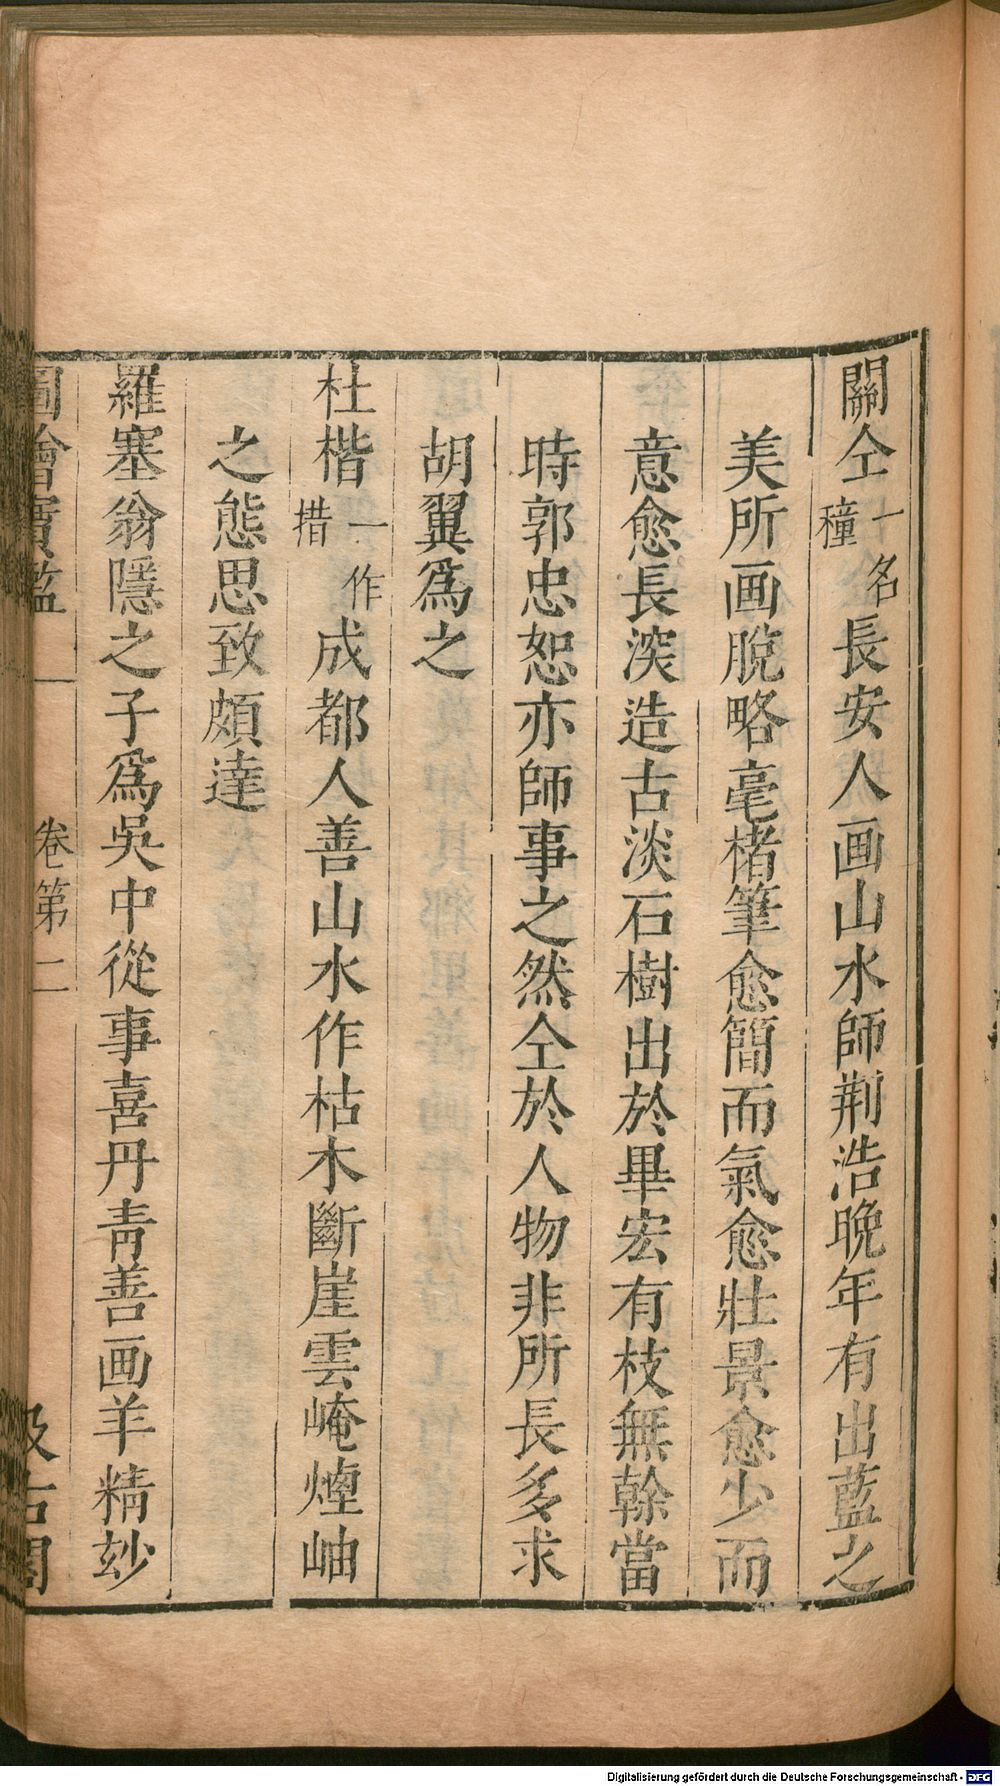 關仝一名穜長安人画山水師荆浩晚年有出藍之
美所画脫略毫楮筆愈簡而氣愈壯景愈少而
意愈長深造古淡石樹出於畢宏有枝無榦當
時郭忠恕亦師事之然仝於人物非所長多求
胡翼爲之
杜楷一作措成都人善山水作枯木斷崖雲崦煙岫
之態思致頗達
羅塞翁隱之子爲吳中從事喜丹靑善画羊精玅
圖繪寶鑑 卷第二 汲古閣
Digitalisierung gefördert durch die Deutsche Forschungsgemeinschaft - DFG